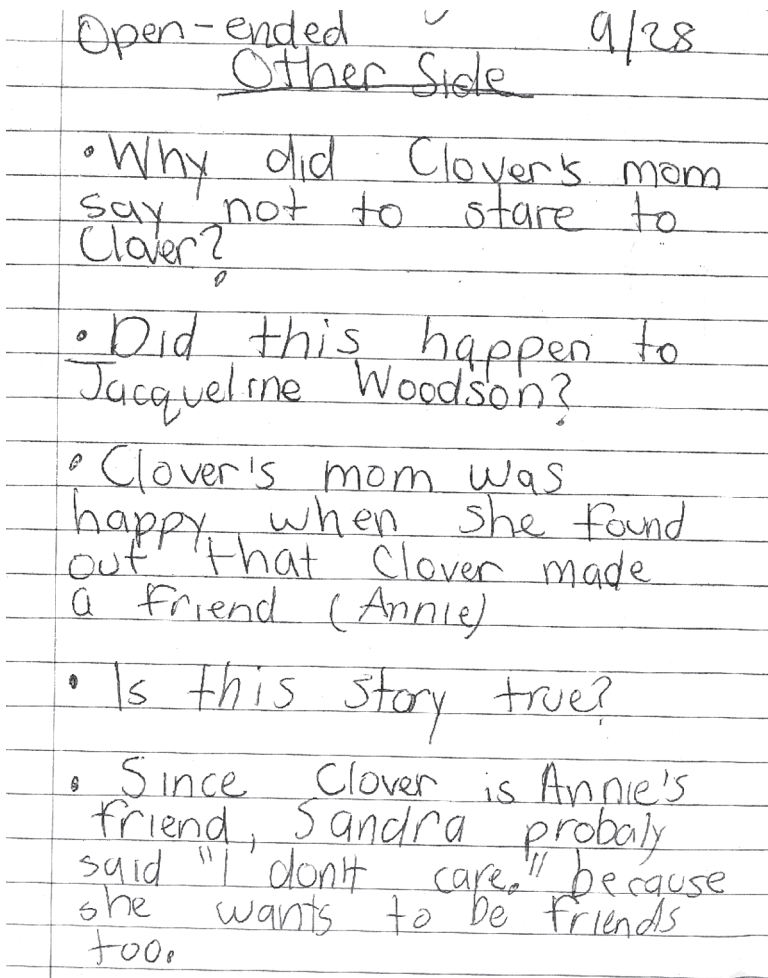 Open-ended 9/28
Other Side
• Why did Clover's mom
say not to stare to
Clover?
• Did this happen to
Jacqueline Woodson?
• Clover's mom was
happy when she found
out that Clover made
a friend (Annie)
• Is this story true?
• Since Clover is Annie's
friend, Sandra probaly
said "I don't care." because
she wants to be friends
too.